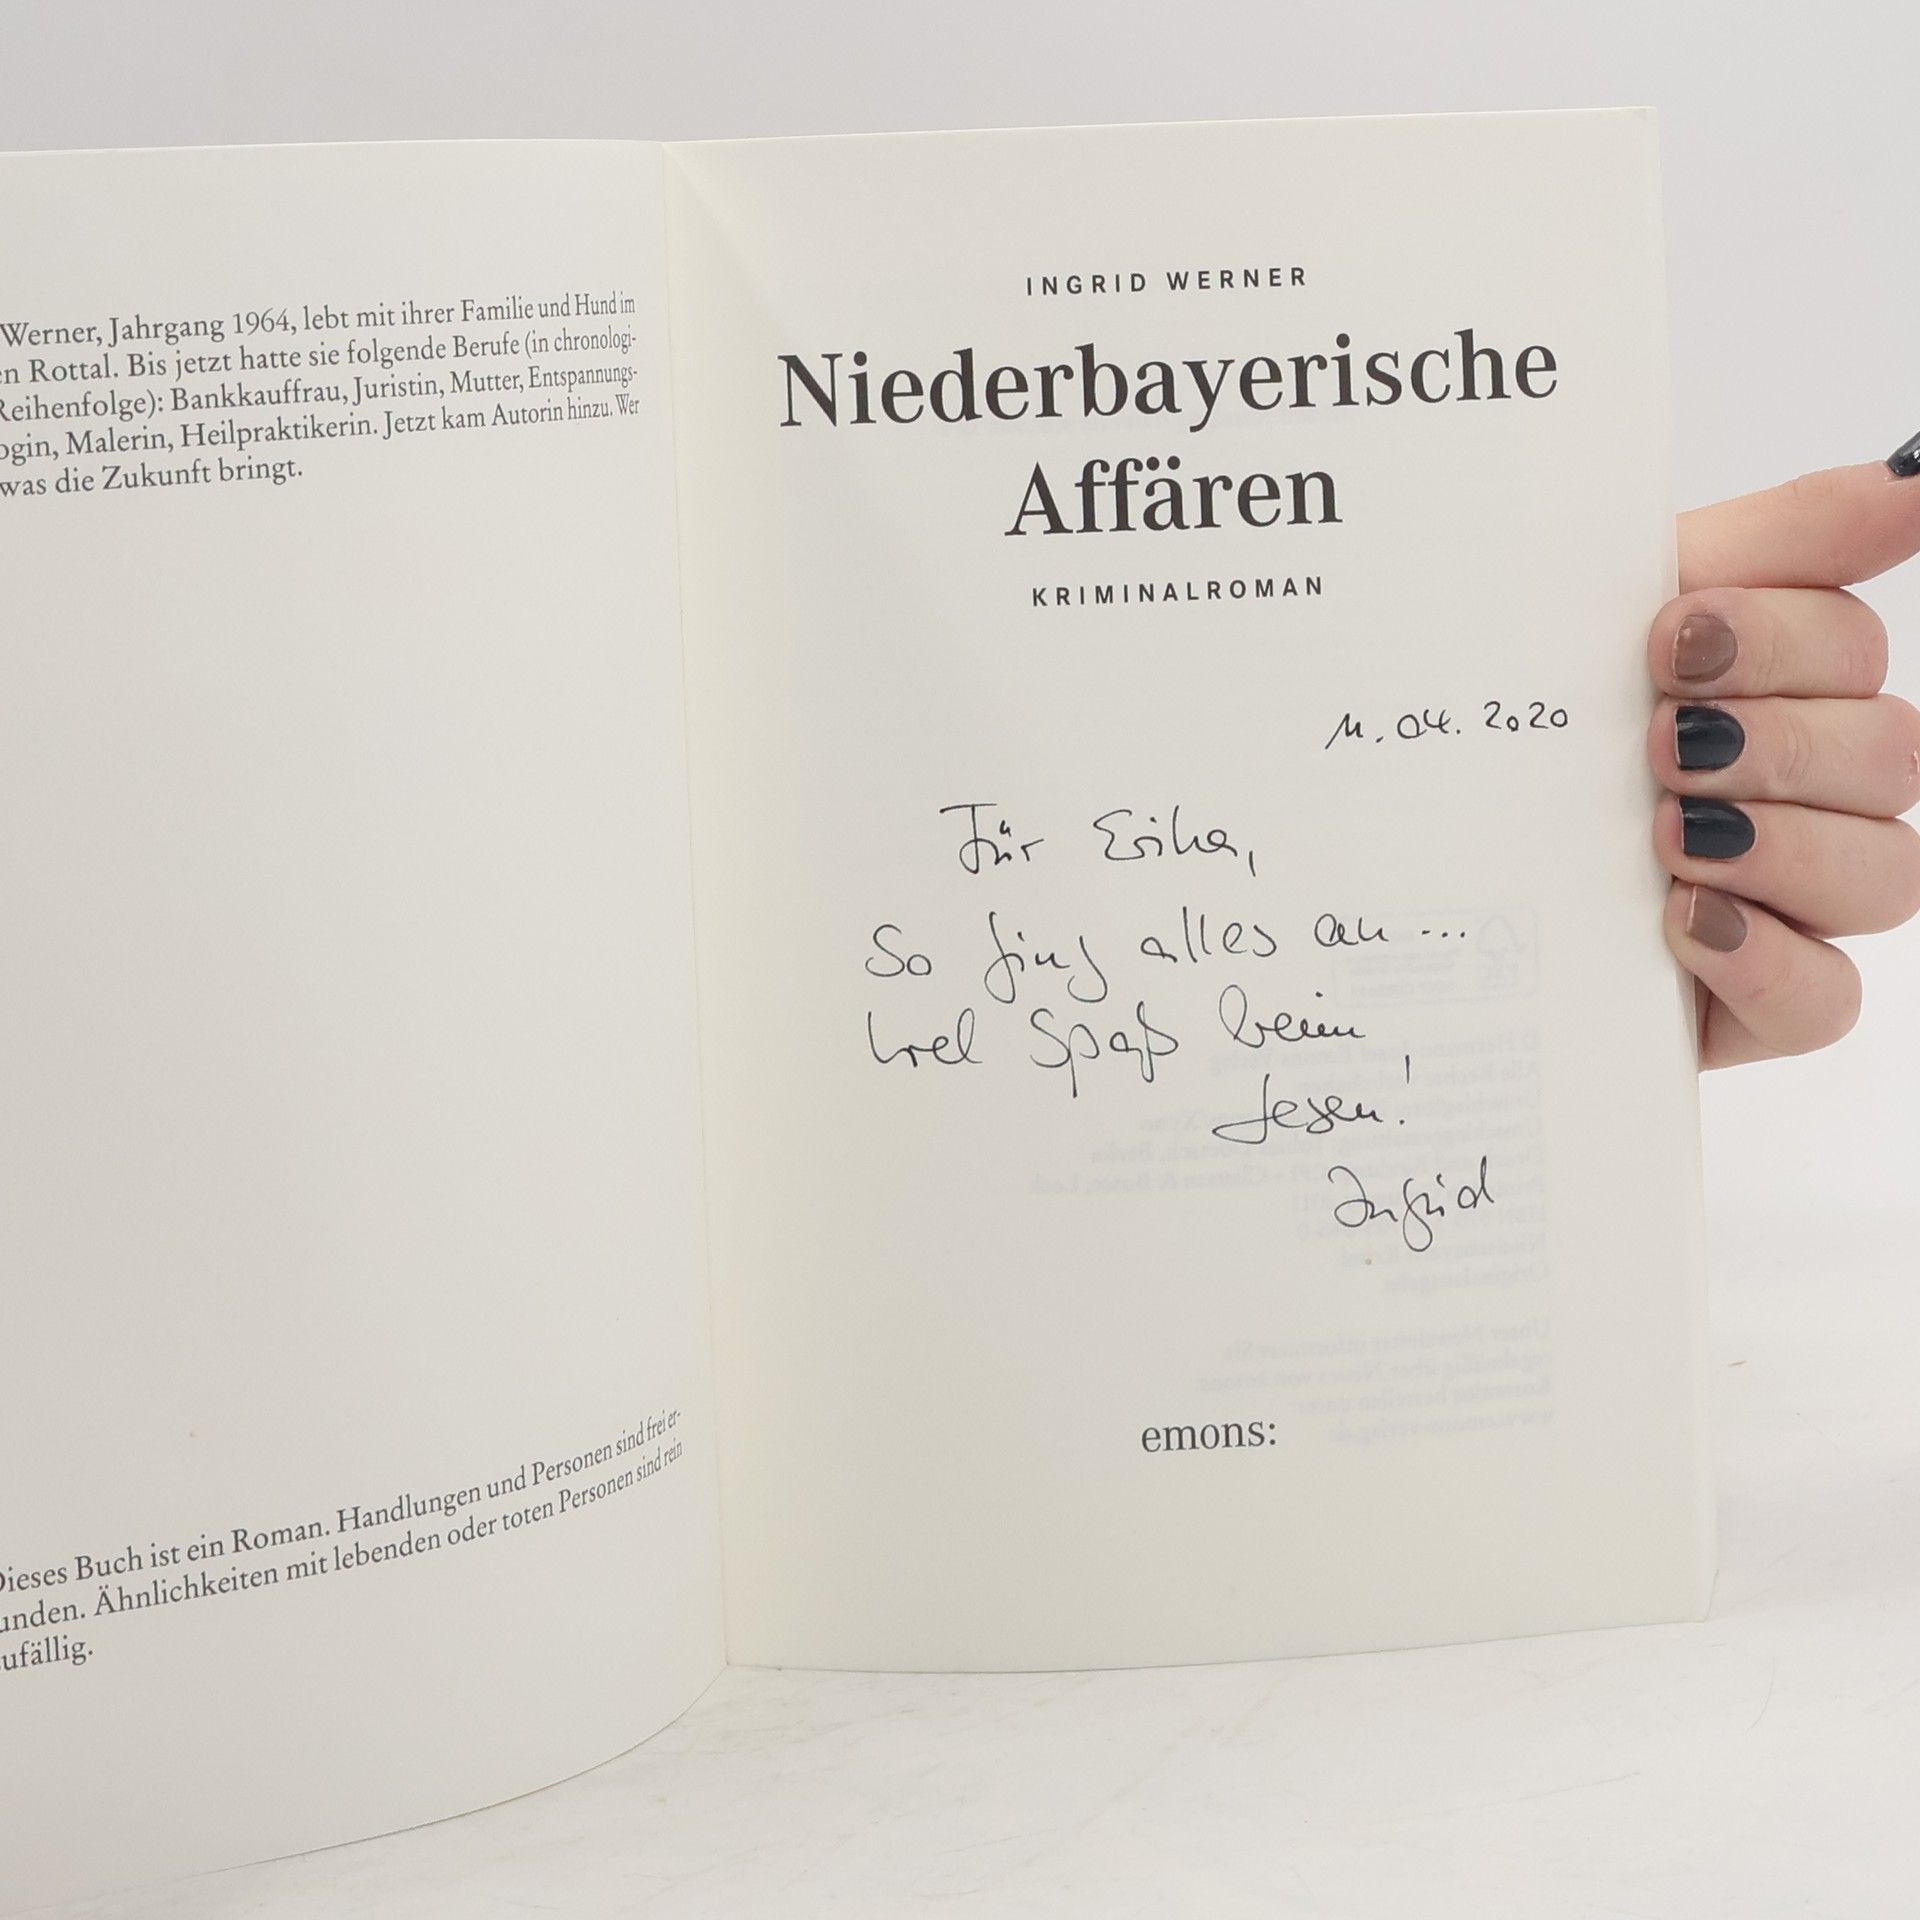 Werner, Jahrgang 1964, lebt mit ihrer Familie und Hund im
en Rottal. Bis jetzt hatte sie folgende Berufe (in chronologi-
Reihenfolge): Bankkauffrau, Juristin, Mutter, Entspannungs-
ogin, Malerin, Heilpraktikerin. Jetzt kam Autorin hinzu. Wer
was die Zukunft bringt.
Dieses Buch ist ein Roman. Handlungen und Personen sind frei er-
unden. Ähnlichkeiten mit lebenden oder toten Personen sind rein
ufällig.
INGRID WERNER
Niederbayerische
Affären
KRIMINALROMAN
11.04.2020
Für Erika,
So fing alles an...
Viel Spaß beim
Lesen!
Ingrid
emons: